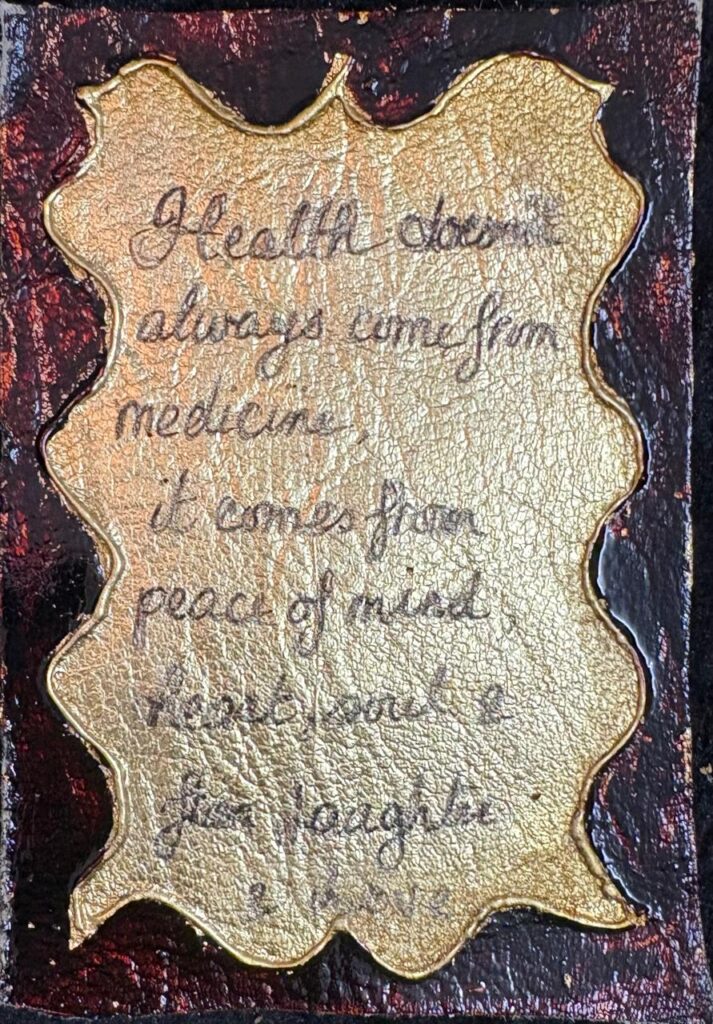 Health doesn't
always come from
medicine,
it comes from
peace of mind,
heart, soul &
from laughter
& love